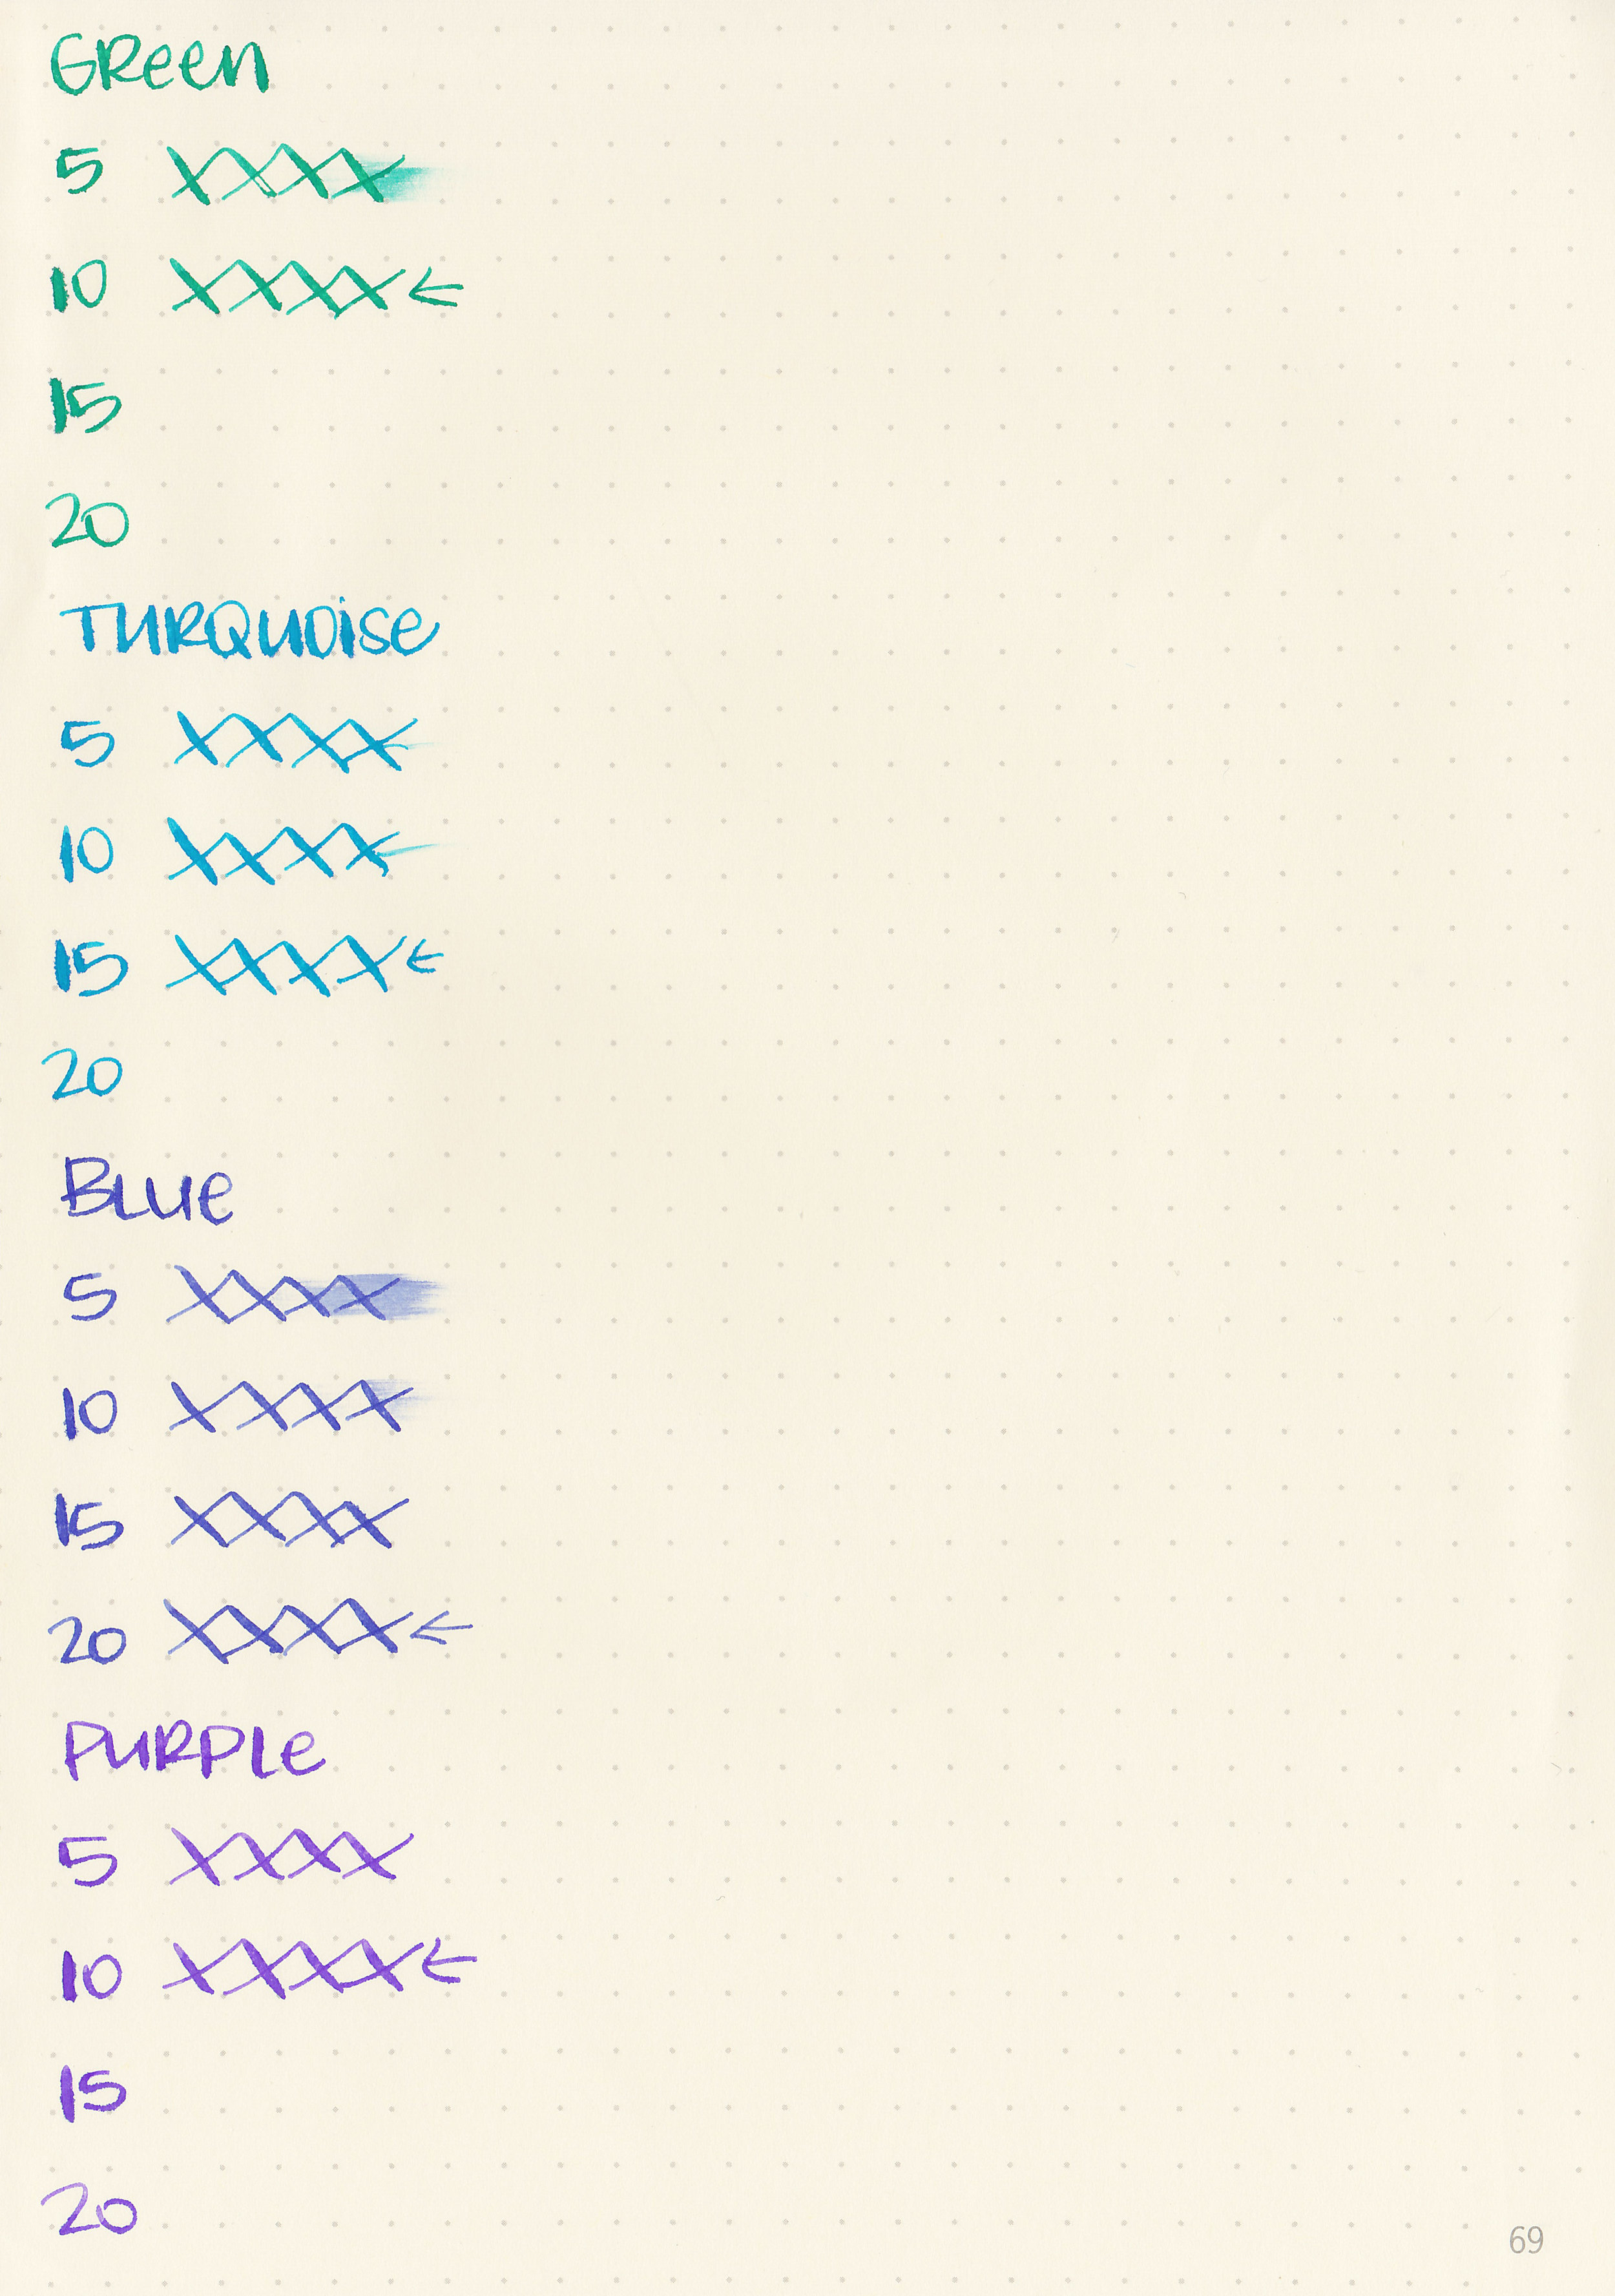 GReen
5 XXXX
10 XXXX←
15
20
TURQUOise
5 XXXX
10 XXXX
15 XXXX←
20
BLUe
5 XXXX
10 XXXX
15 XXXX
20 XXXX←
PURPLe
5 XXXX
10 XXXX←
15
20
69